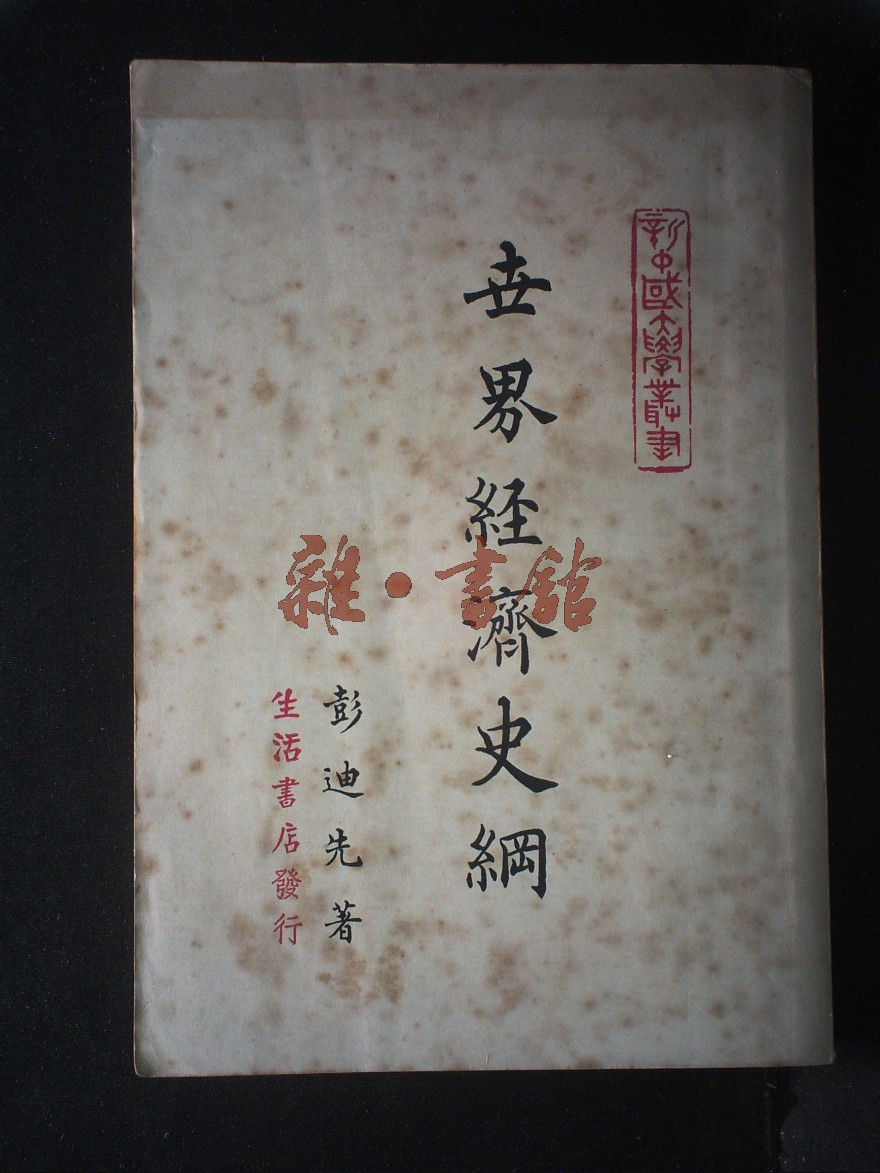 新中國大學叢書
世界経濟史綱
彭迪先著
生活書店發行
雜·書館